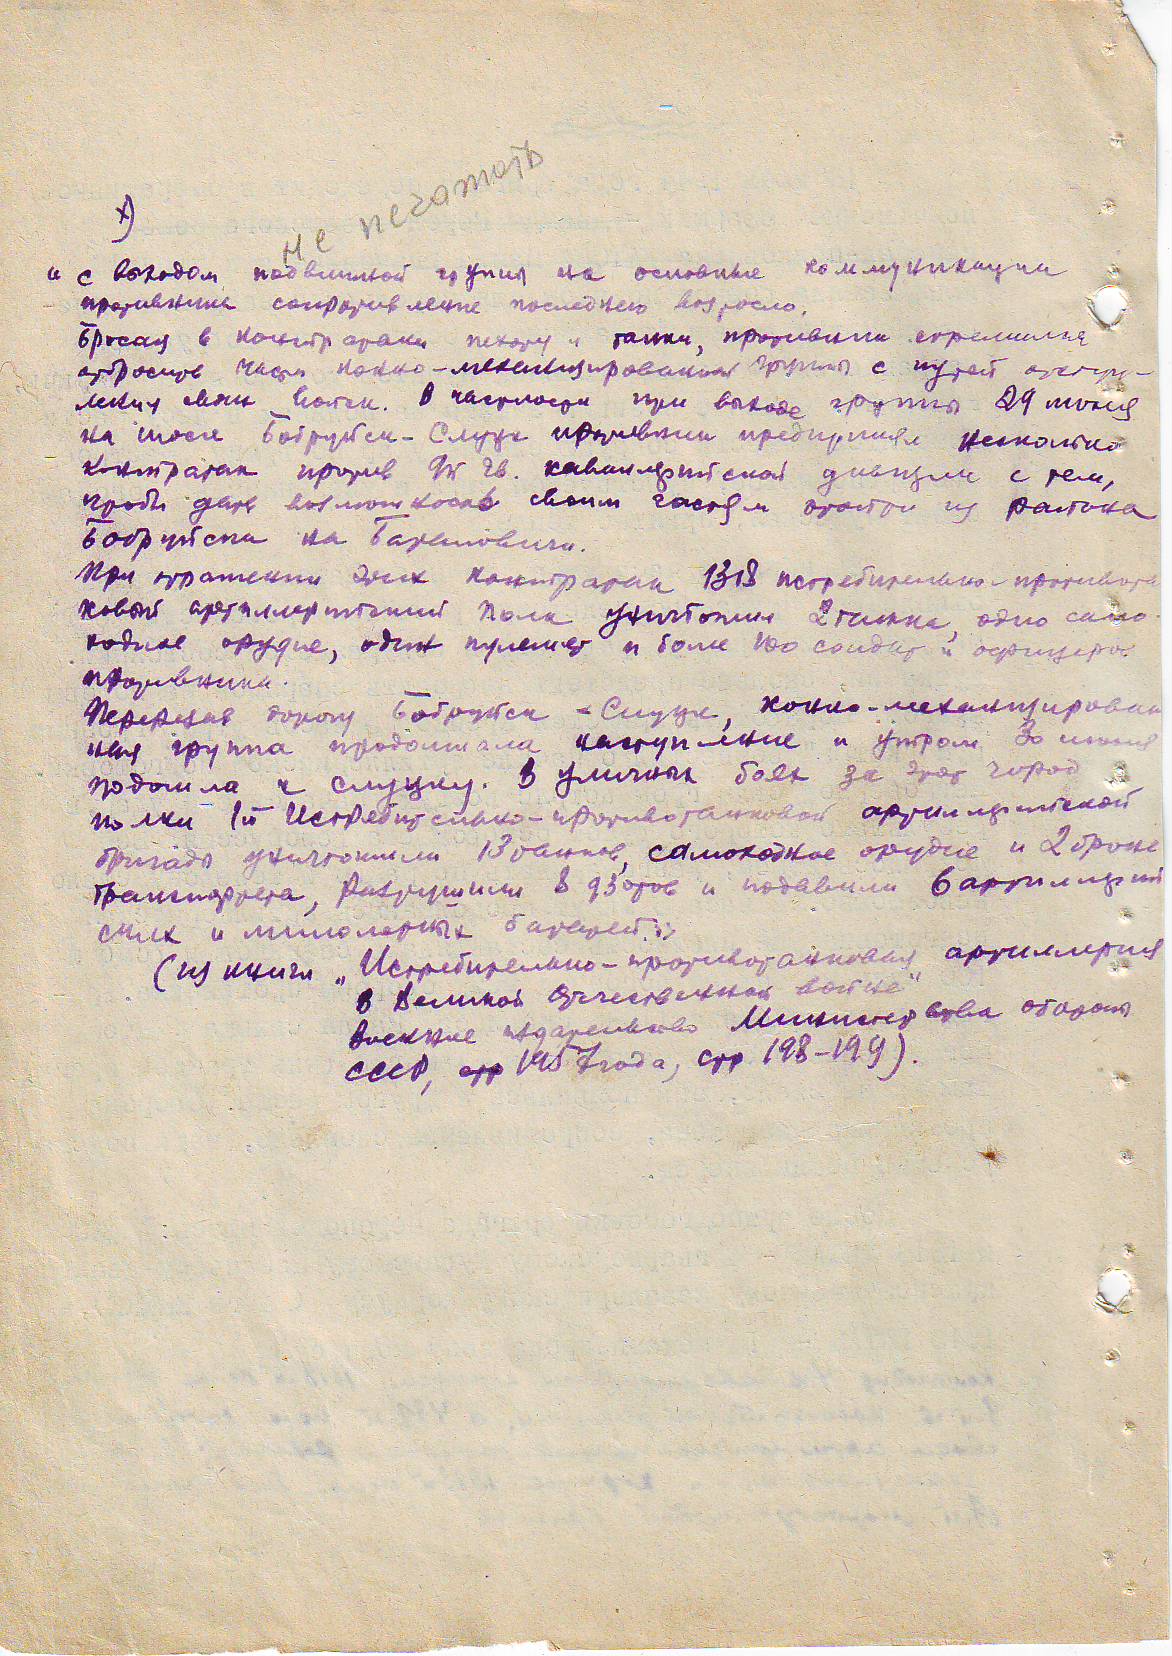 не печатать
х)
"С выходом подвижной группы на основные коммуникации
противника сопротивление последнего возросло.
Бросая в контратаки пехоту и танки, противник стремился
отбросить части конно-механизированной группы с путей отступ-
ления своих войск. В частности при выходе группы 29 июня
на шоссе Бобруйск-Слуцк противник предпринял несколько
контратак против 9й гв. кавалерийской дивизии с тем,
чтобы дать возможность своим частям отойти из района
Бобруйска на Барановичи.
При отражении этих контратак 1318 истребительно-противота
ковый артиллерийский полк уничтожил 2 танка, одно само-
ходное орудие, один пулемет и более 100 солдат и офицеров
противника.
Перерезав дорогу Бобруйск-Слуцк, конно-механизирован
ная группа продолжала наступление и утром 30 июня
подошла к Слуцку. В уличных боях за этот город
полки 1й Истребительно-противотанковой артиллерийской
бригады уничтожили 13 танков, самоходное орудие и 2 броне
транспортера, разрушили 8 дзотов и подавили 6 артиллерий
ских и минометных батарей."
(из книги "Истребительно-противотанковая артиллерия
в Великой Отечественной войне"
Военное издательство Министерства обороны
СССР, 1957 года, стр 198-199).